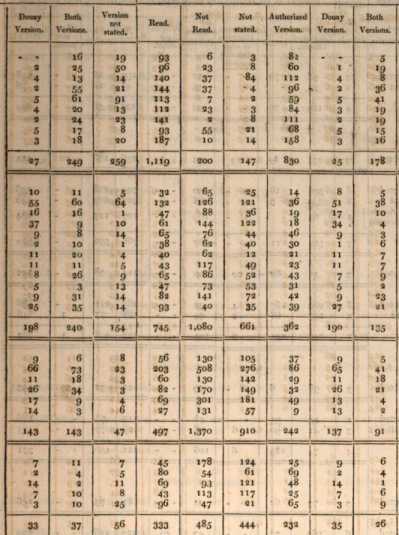 Douay Version. Both Versions. Version not stated. Read. Not Read. Not stated. Authorized Version. Douay Version. Both Versions.
- - 16 19 93 6 3 82 - 5
2 25 50 96 23 8 60 1 19
4 13 14 140 37 84 112 4 8
2 55 21 144 37 4 96 2 36
5 61 91 113 7 2 59 5 41
4 20 13 112 23 3 84 3 19
2 24 23 141 2 8 111 2 19
5 17 8 93 55 21 68 5 15
3 18 20 187 10 14 158 3 16
27 249 259 1,119 200 147 830 25 178
10 11 5 32 65 25 14 8 5
55 60 64 132 126 121 36 51 38
16 16 1 47 88 36 19 17 10
37 9 10 61 144 122 18 34 4
9 8 14 65 76 44 46 9 3
2 10 1 38 62 40 30 1 6
11 20 4 40 62 12 21 11 7
11 11 5 43 117 49 23 11 7
8 26 9 65 86 52 43 7 9
5 3 13 47 73 53 31 5 2
9 31 14 82 141 72 42 9 23
25 35 14 93 40 35 39 27 21
198 240 154 745 1,080 661 362 190 135
9 6 8 56 130 105 37 9 5
66 73 23 203 508 276 86 65 41
11 18 3 60 130 142 29 11 18
26 34 3 82 170 149 32 26 21
17 9 4 69 301 181 49 13 4
14 3 6 27 131 57 9 13 2
143 143 47 497 1,370 910 242 137 91
7 11 7 45 178 124 25 9 6
2 4 5 80 54 61 69 2 4
14 2 11 69 93 121 48 14 1
7 10 8 43 113 117 25 7 6
3 10 25 96 47 21 65 3 9
33 37 56 333 485 444 232 35 26